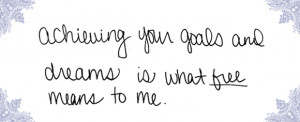 achieving your goals and
dreams is what free
means to me.